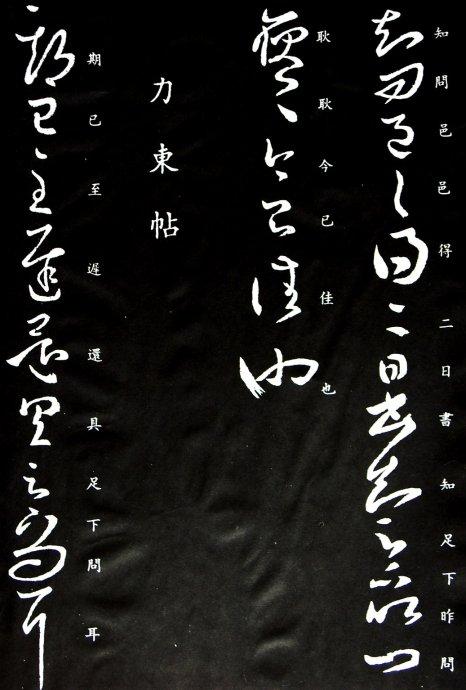 知問邑邑得二日書知足下昨問
耿耿今已佳也
力東帖
期已至遲還具足下問耳